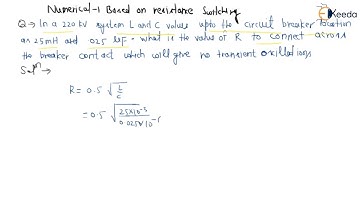 Numerical-1 Based on resistance Switching
Ekeeda
Q→ In a 220 kV system L and C values upto the circuit breaker location
are 25mH and .025 µF - what is the value of R to connect across
the breaker contact which will give no transient oscillations
Solⁿ →
R = 0.5 √(L/C)
= 0.5 √(25×10⁻³/0.025×10⁻⁶)